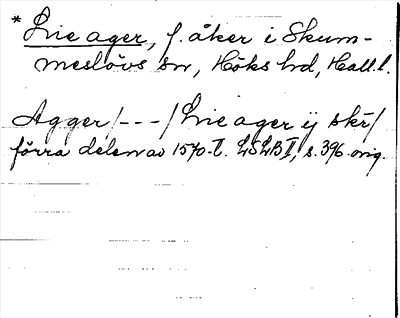 * Lrie ager, f. åker i Skum-
meslövs sn, Höks hd, Hall. l.
Agger /---/ Lrie ager ij skr/
förra delen av 1570-t. LSLB I, s. 396 orig.